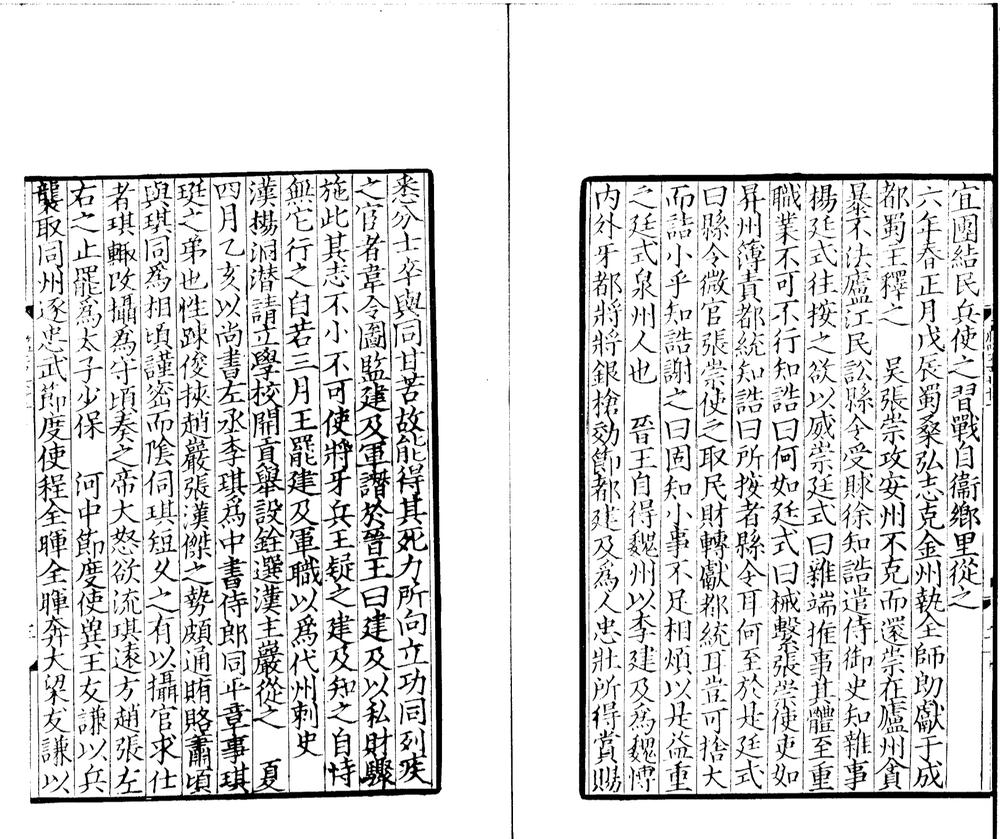 宜團結民兵使之習戰自衞鄉里從之
六年春正月戊辰蜀桑弘志克金州執全師朗獻于成
都蜀王釋之　吳張崇攻安州不克而還崇在廬州貪
暴不法廬江民訟縣令受賕徐知誥遣侍御史知雜事
楊廷式往按之欲以威崇廷式曰雜端推事其體至重
職業不可不行知誥曰何如廷式曰械繫張崇使吏如
昇州簿責都統知誥曰所按者縣令耳何至於是廷式
曰縣令微官張崇使之取民財轉獻都統耳豈可捨大
而詰小乎知誥謝之曰固知小事不足相煩以是益重
之廷式泉州人也　晉王自得魏州以李建及爲魏博
内外牙都將將銀槍効節都建及爲人忠壯所得賞賜
悉分士卒與同甘苦故能得其死力所向立功同列疾
之宦者韋令圖監建及軍譖於晉王曰建及以私財驟
施此其志不小不可使將牙兵王疑之建及知之自恃
無它行之自若三月王罷建及軍職以爲代州刺史
漢楊洞潜請立學校開貢舉設銓選漢主巖從之　夏
四月乙亥以尚書左丞李琪爲中書侍郎同平章事琪
珽之弟也性踈俊挾趙巖張漢傑之勢頗通賄賂蕭頃
與琪同爲相頃謹密而陰伺琪短乆之有以攝官求仕
者琪輙改攝爲守頃奏之帝大怒欲流琪遠方趙張左
右之止罷爲太子少保　河中節度使兾王友謙以兵
襲取同州逐忠武節度使程全暉全暉奔大梁友謙以